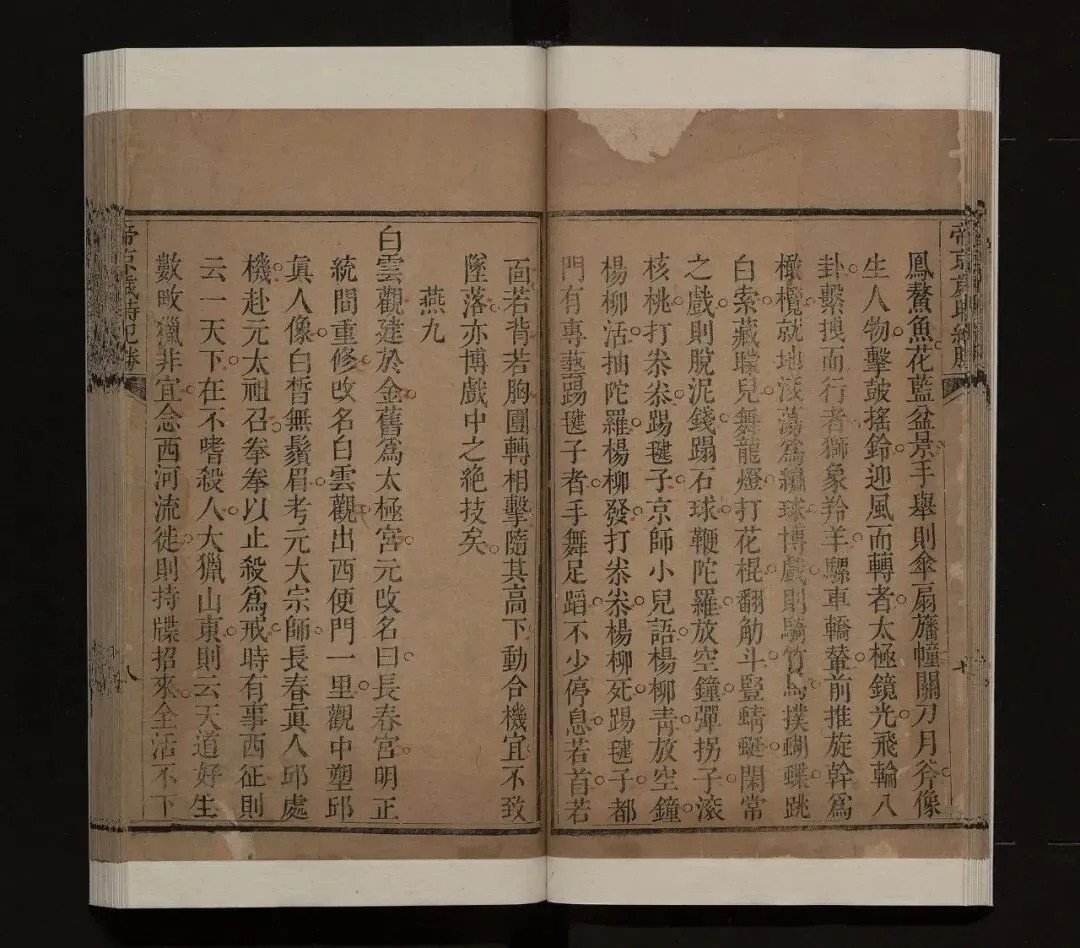 鳳鰲魚花藍盆景手舉則傘扇旛幢關刀月斧像
生人物擊鼓搖鈴迎風而轉者太極鏡光飛輪八
卦繫拽而行者獅象羚羊騾車轎輦前推旋幹爲
橄欖就地滾蕩爲繡球博戲則騎竹馬撲蝴蝶跳
白索藏矇兒舞龍燈打花棍翻觔斗豎蜻蜓閑常
之戲則脫泥錢蹋石球鞭陀羅放空鐘彈拐子滾
核桃打尜尜踢毽子京師小兒語楊柳靑放空鐘
楊柳活抽陀羅楊柳發打尜尜楊柳死踢毽子都
門有專藝踢毽子者手舞足蹈不少停息若首若
面若背若胸團轉相擊隨其高下動合機宜不致
墜落亦博戲中之絶技矣
燕九
白雲觀建於金舊爲太極宮元改名曰長春宮明正
統間重修改名白雲觀出西便門一里觀中塑邱
眞人像白皙無鬚眉考元大宗師長春眞人邱處
機赴元太祖召拳拳以止殺爲戒時有事西征則
云一天下在不嗜殺人大獵山東則云天道好生
數畋獵非宜念西河流徙則持牒招來全活不下
帝京歲時紀勝
八